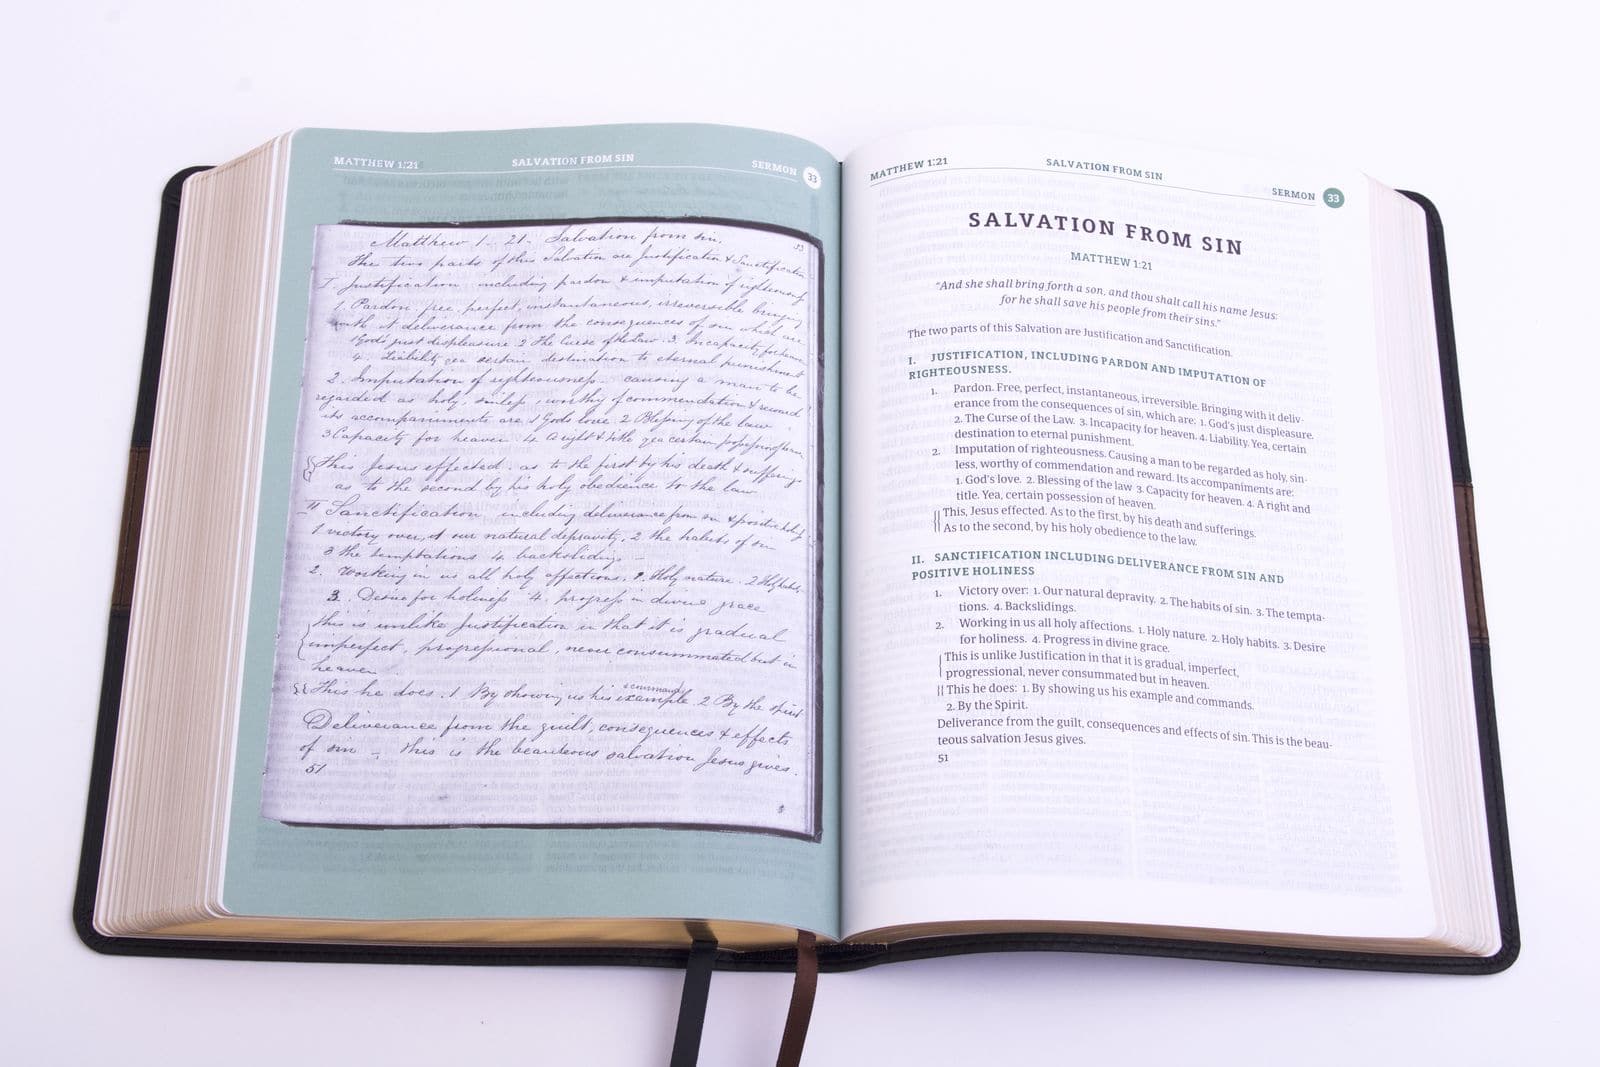 MATTHEW 1:21
SALVATION FROM SIN
SERMON 33
Matthew 1 - 21 - Salvation from sin.
33
The two parts of this Salvation are Justification & Sanctification
I Justification including pardon & imputation of righteousness
1. Pardon, free, perfect, instantaneous, irreversible bringing
with it deliverance from the consequences of sin which are
1 God's just displeasure 2 The Curse of the Law. 3. Incapacity for heaven
4. Liability yea certain destination to eternal punishment
2. Imputation of righteousness. causing a man to be
regarded as holy, sinless, worthy of commendation & reward
its accompaniments are 1 Gods love. 2 Blessing of the law
3 Capacity for heaven 4. A right & title yea certain possession of heaven
This Jesus effected. as to the first by his death & sufferings
as to the second by his holy obedience to the law
II Sanctification including deliverance from sin & positive holiness
1 victory over, 1 our natural depravity. 2 the habits of sin
3 the temptations 4. backslidings -
2. Working in us all holy affections, 1. Holy nature. 2 Holy habits.
3. Desire for holiness 4. progress in divine grace
This is unlike Justification in that it is gradual
imperfect, progressional, never consummated but in
heaven.
& commands
This he does. 1 By showing us his example 2 By the spirit
Deliverance from the guilt, consequences & effects
of sin - this is the beauteous salvation Jesus gives.
51
MATTHEW 1:21
SALVATION FROM SIN
SERMON 33
SALVATION FROM SIN
MATTHEW 1:21
"And she shall bring forth a son, and thou shalt call his name Jesus:
for he shall save his people from their sins."
The two parts of this Salvation are Justification and Sanctification.
I. JUSTIFICATION, INCLUDING PARDON AND IMPUTATION OF
RIGHTEOUSNESS.
1. Pardon. Free, perfect, instantaneous, irreversible. Bringing with it deliv-
erance from the consequences of sin, which are: 1. God's just displeasure.
2. The Curse of the Law. 3. Incapacity for heaven. 4. Liability. Yea, certain
destination to eternal punishment.
2. Imputation of righteousness. Causing a man to be regarded as holy, sin-
less, worthy of commendation and reward. Its accompaniments are:
1. God's love. 2. Blessing of the law 3. Capacity for heaven. 4. A right and
title. Yea, certain possession of heaven.
This, Jesus effected. As to the first, by his death and sufferings.
As to the second, by his holy obedience to the law.
II. SANCTIFICATION INCLUDING DELIVERANCE FROM SIN AND
POSITIVE HOLINESS
1. Victory over: 1. Our natural depravity. 2. The habits of sin. 3. The tempta-
tions. 4. Backslidings.
2. Working in us all holy affections. 1. Holy nature. 2. Holy habits. 3. Desire
for holiness. 4. Progress in divine grace.
This is unlike Justification in that it is gradual, imperfect,
progressional, never consummated but in heaven.
This he does: 1. By showing us his example and commands.
2. By the Spirit.
Deliverance from the guilt, consequences and effects of sin. This is the beau-
teous salvation Jesus gives.
51